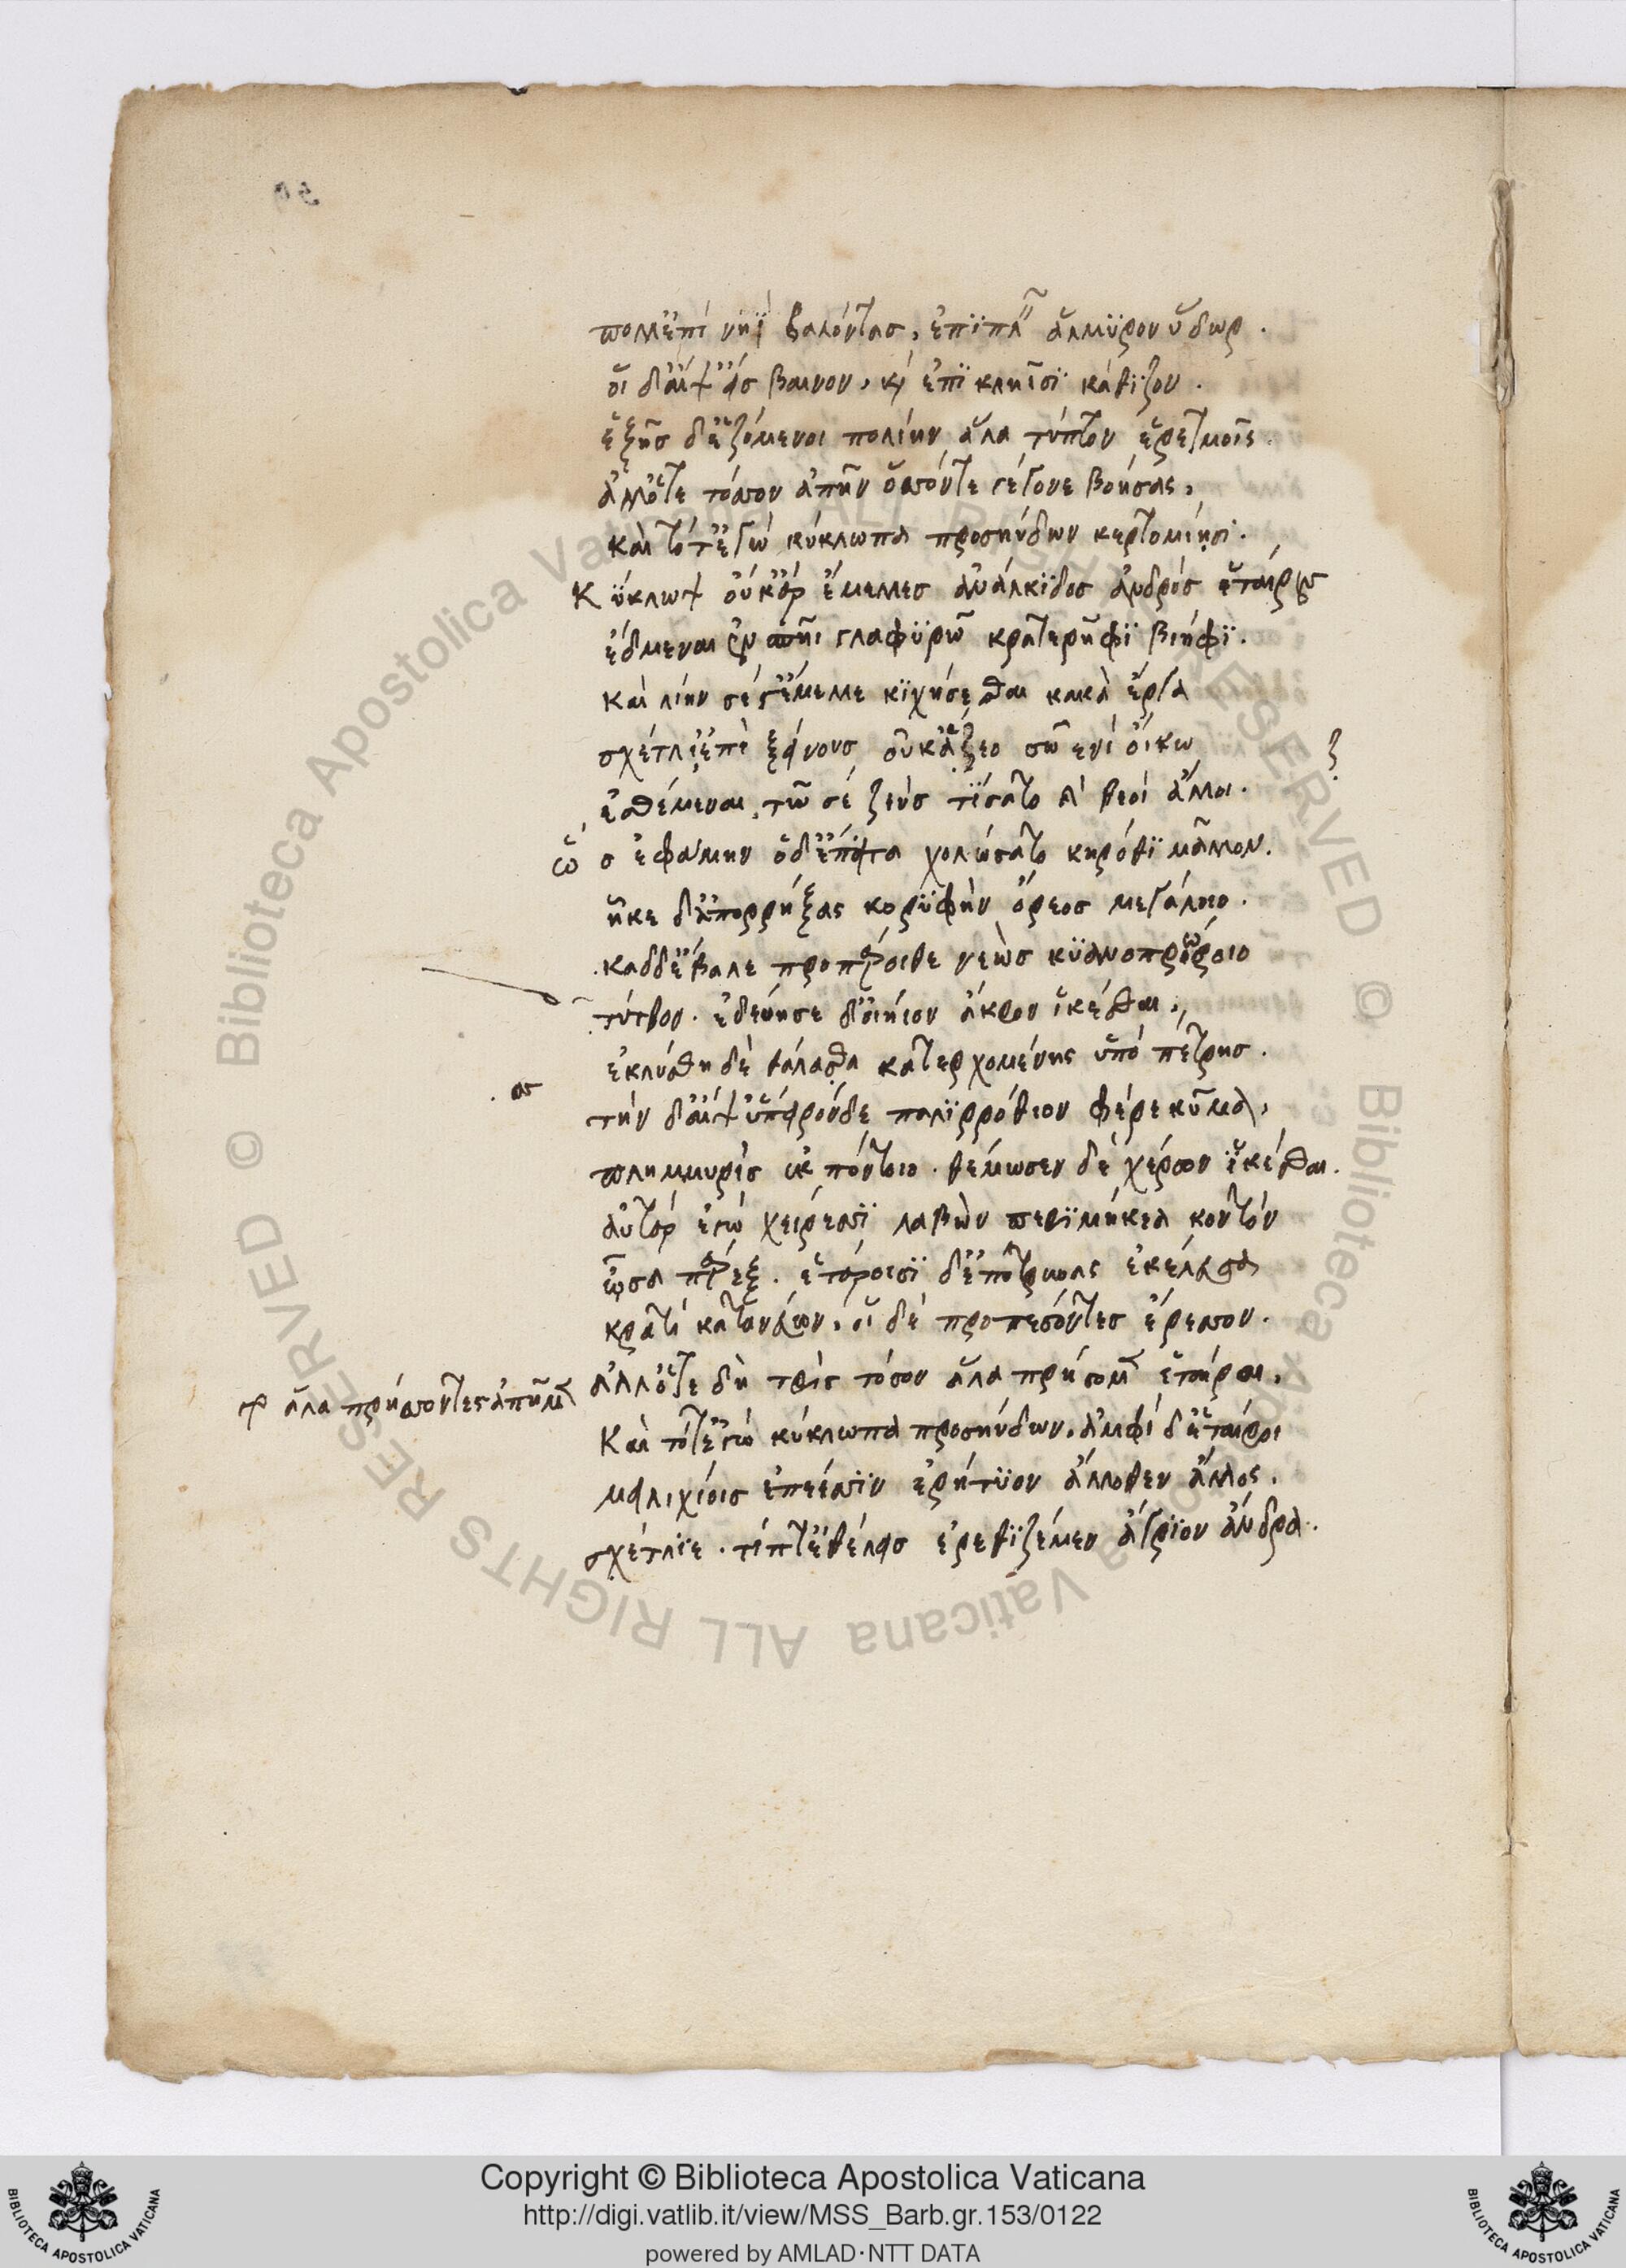 πολλ' ἐπὶ νηῒ βαλόντας, ἐπιπλεῖν ἁλμυρὸν ὕδωρ.
οἱ δ' αἶψ' εἴσβαινον, καὶ ἐπὶ κληῖσι κάθιζον.
ἑξῆς δ' ἑζόμενοι πολιὴν ἅλα τύπτον ἐρετμοῖς.
ἀλλ' ὅτε τόσσον ἀπῆν ὅσσόν τε γέγωνε βοήσας,
καὶ τότ' ἐγὼ κύκλωπα προσηύδων κερτομίησι.
Κύκλωψ οὐκ ἄρ' ἔμελλες ἀνάλκιδος ἀνδρὸς ἑταίρους
ἔδμεναι ἐν σπῆι γλαφυρῷ κρατερῆφι βίηφι.
καὶ λίην σέ γ' ἔμελλε κιχήσεσθαι κακὰ ἔργα
σχέτλι' ἐπεὶ ξείνους οὐχ ἅζεο σῷ ἐνὶ οἴκῳ
ἐσθέμεναι, τῷ σε ζεὺς τίσατο καὶ θεοὶ ἄλλοι.
ὣς ἐφάμην ὁ δ' ἔπειτα χολώσατο κηρόθι μᾶλλον.
ἧκε δ' ἀπορρήξας κορυφὴν ὄρεος μεγάλοιο.
καδδ' ἔβαλε προπάροιθε νεὼς κυανοπρώροιο
τυτθόν. ἐδεύησε δ' οἰήιον ἄκρον ἱκέσθαι,
ἐκλύσθη δὲ θάλασσα κατερχομένης ὑπὸ πέτρης.
τὴν δ' αἶψ' ἤπειρόνδε παλιρρόθιον φέρε κῦμα,
πλημμυρὶς ἐκ πόντοιο. θέμωσεν δὲ χέρσον ἱκέσθαι.
αὐτὰρ ἐγὼ χείρεσσι λαβὼν περιμήκεα κοντόν
ὦσα παρέξ. ἑτάροισι δ' ἐποτρύνας ἐκέλευσα
κρατὶ κατανεύων, οἱ δὲ προπεσόντες ἔρεσσον.
ἀλλ' ὅτε δὴ τρὶς τόσον ἅλα πρήσσομεν ἑταῖροι,
γρ ἅλα πρήσσοντες ἀπῆμεν
καὶ τότ' ἐγὼ κύκλωπα προσηύδων, ἀμφὶ δ' ἑταῖροι
μειλιχίοις ἐπέεσσιν ἐρήτυον ἄλλοθεν ἄλλος.
σχέτλιε. τίπτ' ἐθέλεις ἐρεθιζέμεν ἄγριον ἄνδρα.
Copyright © Biblioteca Apostolica Vaticana
http://digi.vatlib.it/view/MSS_Barb.gr.153/0122
powered by AMLAD·NTT DATA
BIBLIOTECA APOSTOLICA VATICANA
BIBLIOTECA APOSTOLICA VATICANA
© Biblioteca Apostolica Vaticana ALL RIGHTS RESERVED © Biblioteca Apostolica Vaticana ALL RIGHTS RESERVED